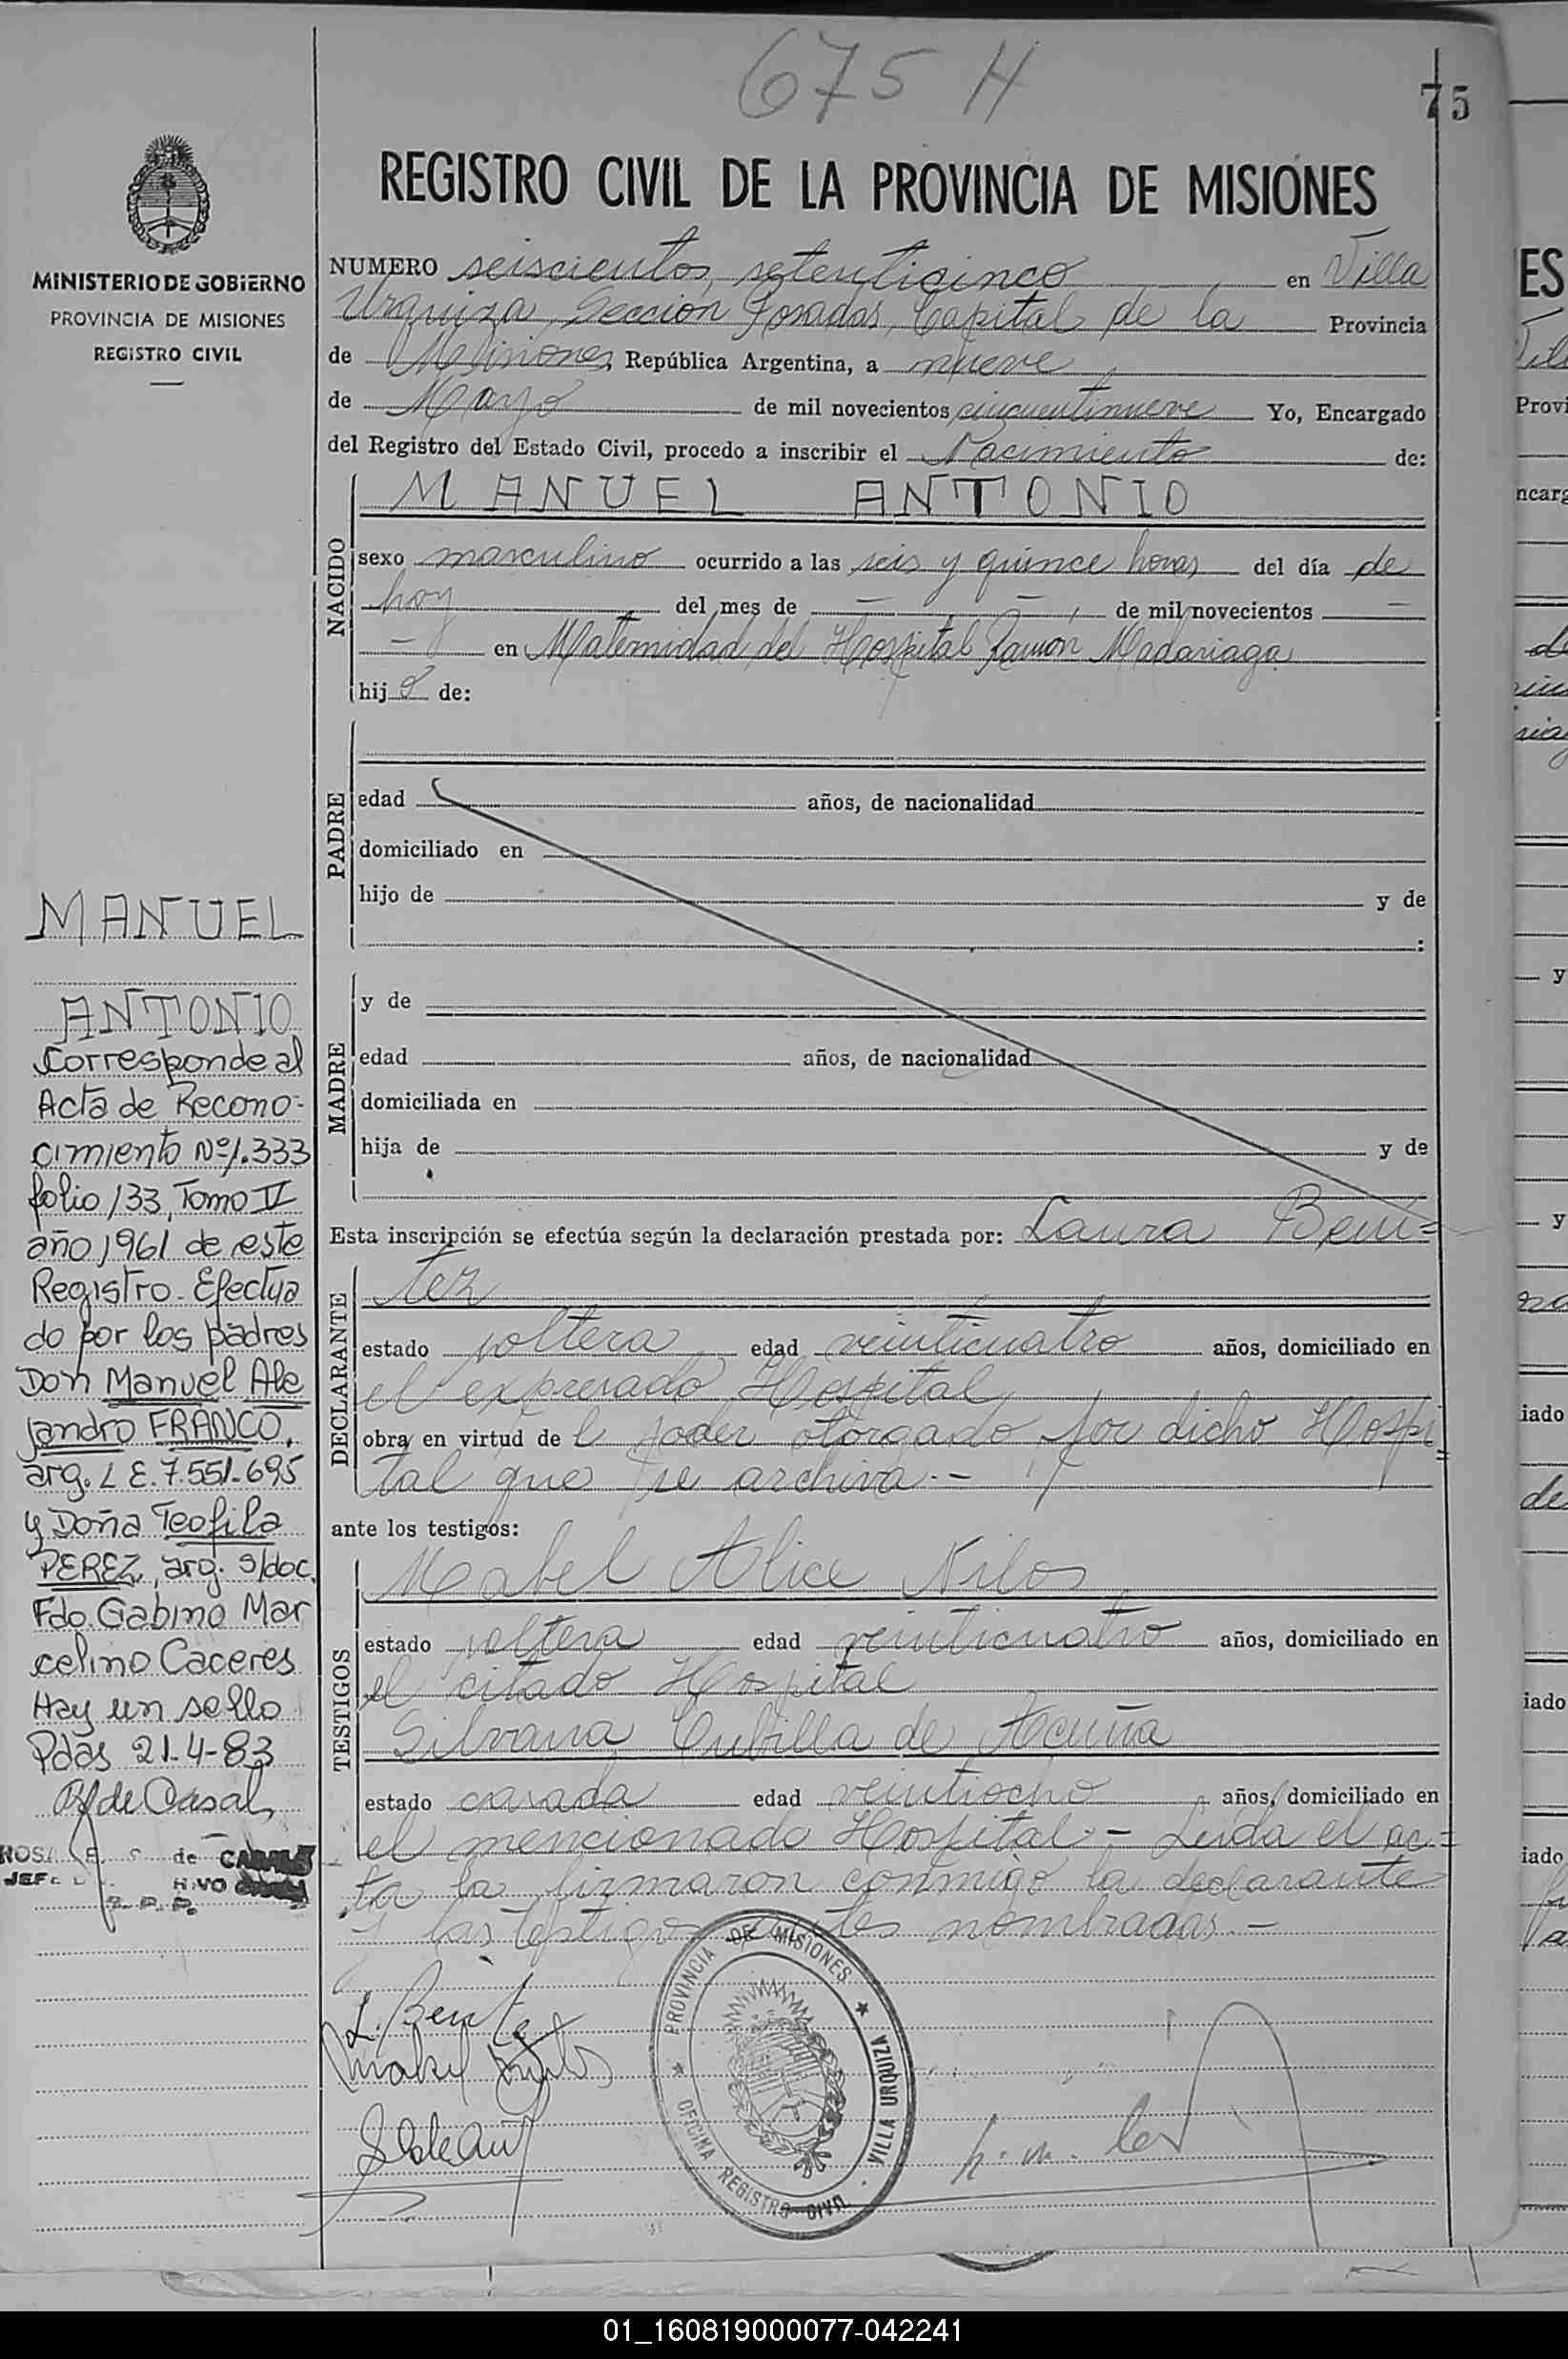 675 H
75
REGISTRO CIVIL DE LA PROVINCIA DE MISIONES
MINISTERIO DE GOBIERNO
PROVINCIA DE MISIONES
REGISTRO CIVIL
NUMERO seiscientos setenticinco en Villa
Urquiza, Sección Posadas, Capital de la Provincia
de Misiones, República Argentina, a nueve
de Mayo de mil novecientos cincuentinueve Yo, Encargado
del Registro del Estado Civil, procedo a inscribir el Nacimiento de:
NACIDO
MANUEL ANTONIO
sexo masculino ocurrido a las seis y quince horas del día de
hoy del mes de — — de mil novecientos —
— en Maternidad del Hospital Ramón Madariaga
hijo de:
PADRE
edad años, de nacionalidad
domiciliado en
hijo de y de
:
MADRE
y de
edad años, de nacionalidad
domiciliada en
hija de y de
Esta inscripción se efectúa según la declaración prestada por: Laura Bení=
DECLARANTE
tez
estado soltera edad veinticuatro años, domiciliado en
el expresado Hospital
obra en virtud del poder otorgado por dicho Hospi=
tal que se archiva.-
ante los testigos:
TESTIGOS
Mabel Alice Nilos
estado soltera edad veinticuatro años, domiciliado en
el citado Hospital
Silvana Cubilla de Acuña
estado casada edad veintiocho años, domiciliado en
el mencionado Hospital.- Leída el ac=
ta la firmaron conmigo la declarante
y las testigos antes nombradas.-
L. Benitez
PROVINCIA DE MISIONES
OFICINA REGISTRO CIVIL - VILLA URQUIZA
MANUEL
ANTONIO
Corresponde al
Acta de Recono-
cimiento Nº 1.333
folio 133, Tomo IV
año 1961 de este
Registro. Efectua
do por los padres
Don Manuel Ale
jandro FRANCO,
arg. L E. 7.551.695
y Doña Teofila
PEREZ, arg. s/doc.
Fdo. Gabino Mar
celino Caceres
Hay un sello
Pdas 21-4-83
de Casal
de
JEF
01_160819000077-042241